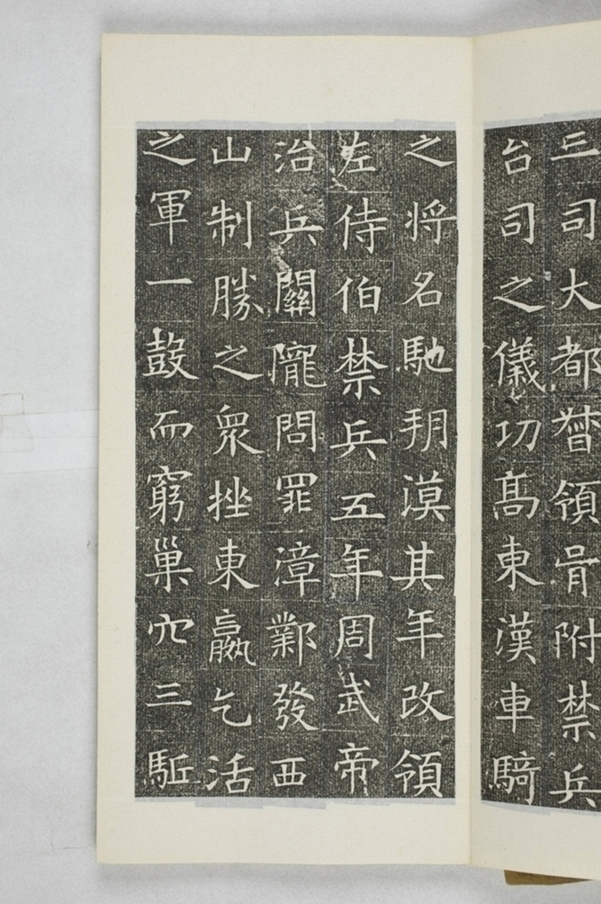 三司大都督領骨附禁兵
台司之儀功髙東漢車騎
之将名馳朔漠其年改領
左侍伯禁兵五年周武帝
治兵關隴問罪漳鄴發西
山制勝之衆挫東嬴乞活
之軍一鼓而窮巢穴三駈